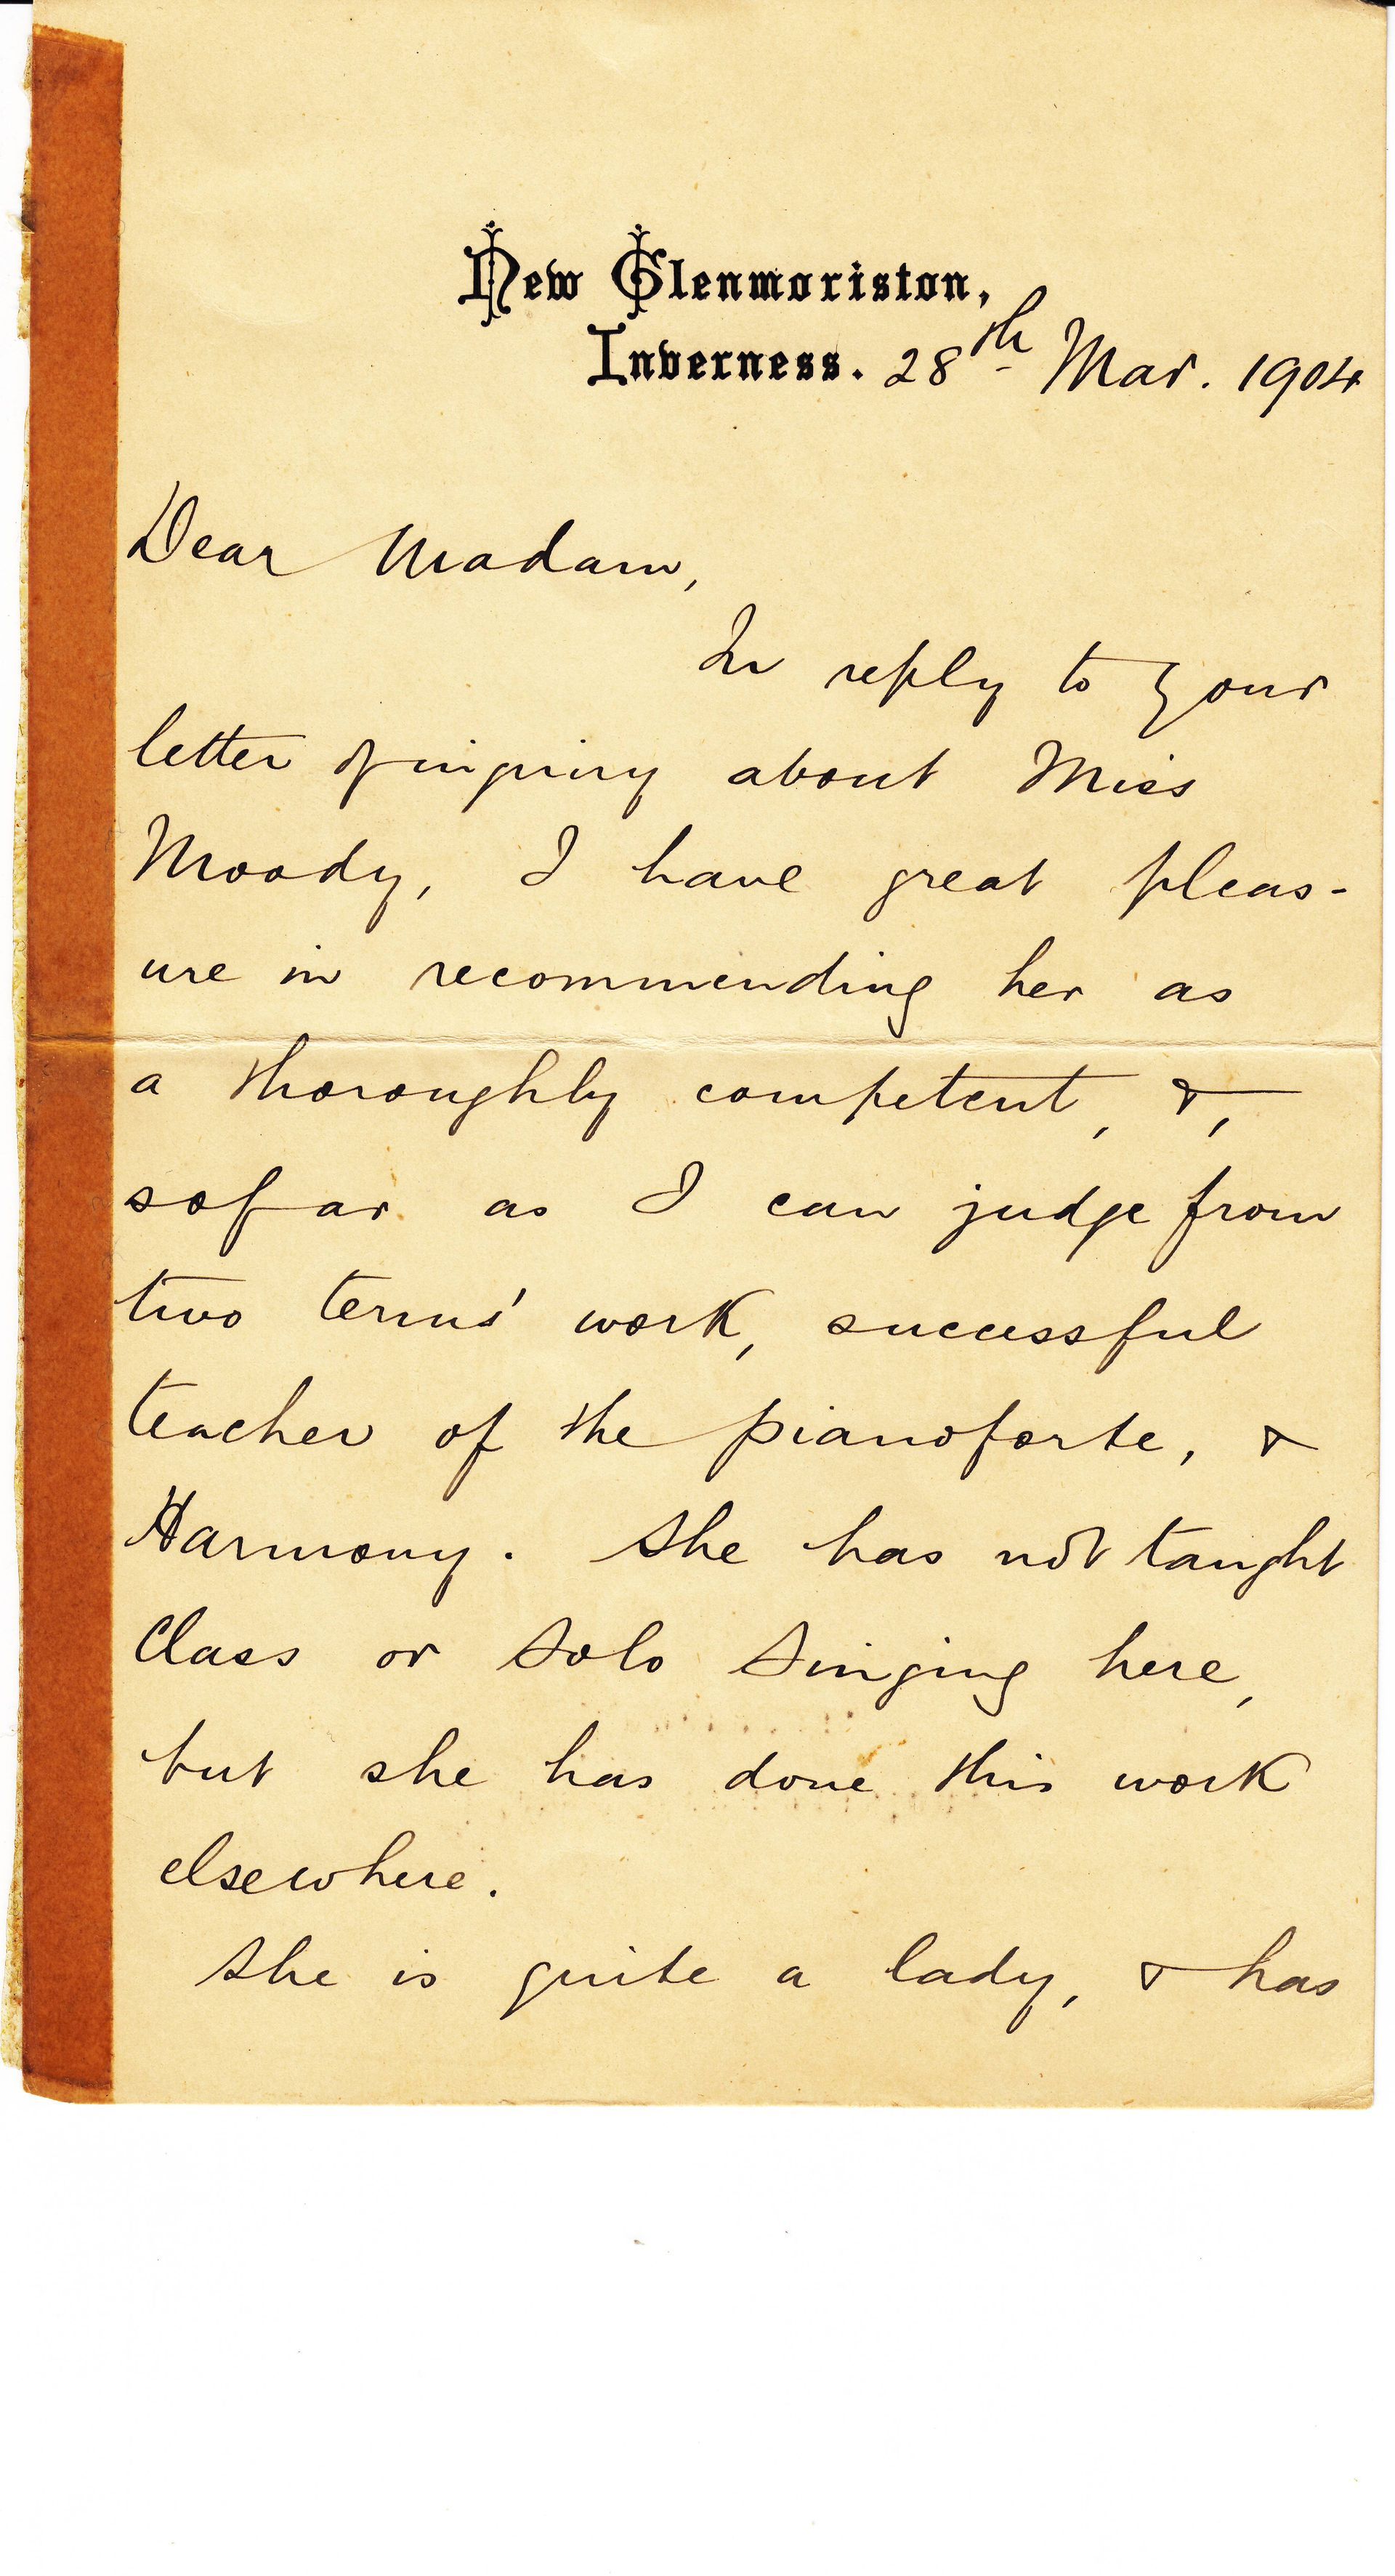 New Glenmoriston,
Inverness. 28th Mar. 1904
Dear Madam,
In reply to your
letter of inquiry about Miss
Moody, I have great pleas-
ure in recommending her as
a thoroughly competent, &,
so far as I can judge from
two terms' work, successful
teacher of the pianoforte, &
Harmony. She has not taught
Class or Solo Singing here,
but she has done this work
elsewhere.
She is quite a lady, & has